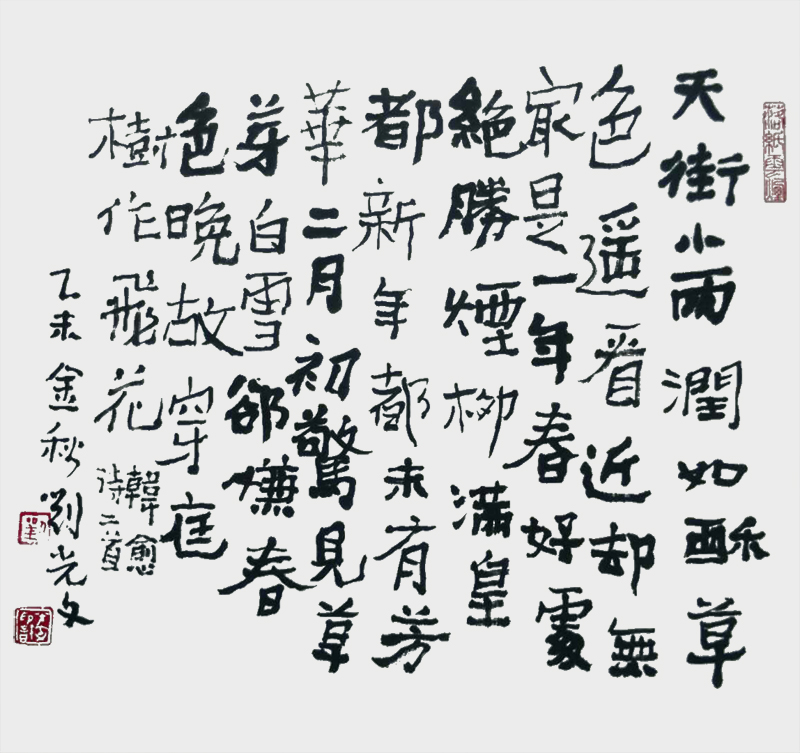 落紙雲煙
天街小雨潤如酥草
色遥看近却無
最是一年春好處
絶勝煙柳滿皇
都新年都未有芳
華二月初驚見草
芽白雪卻嫌春
色晚故穿庭
樹作飛花
韓愈
詩二首
乙未金秋劉光文
劉